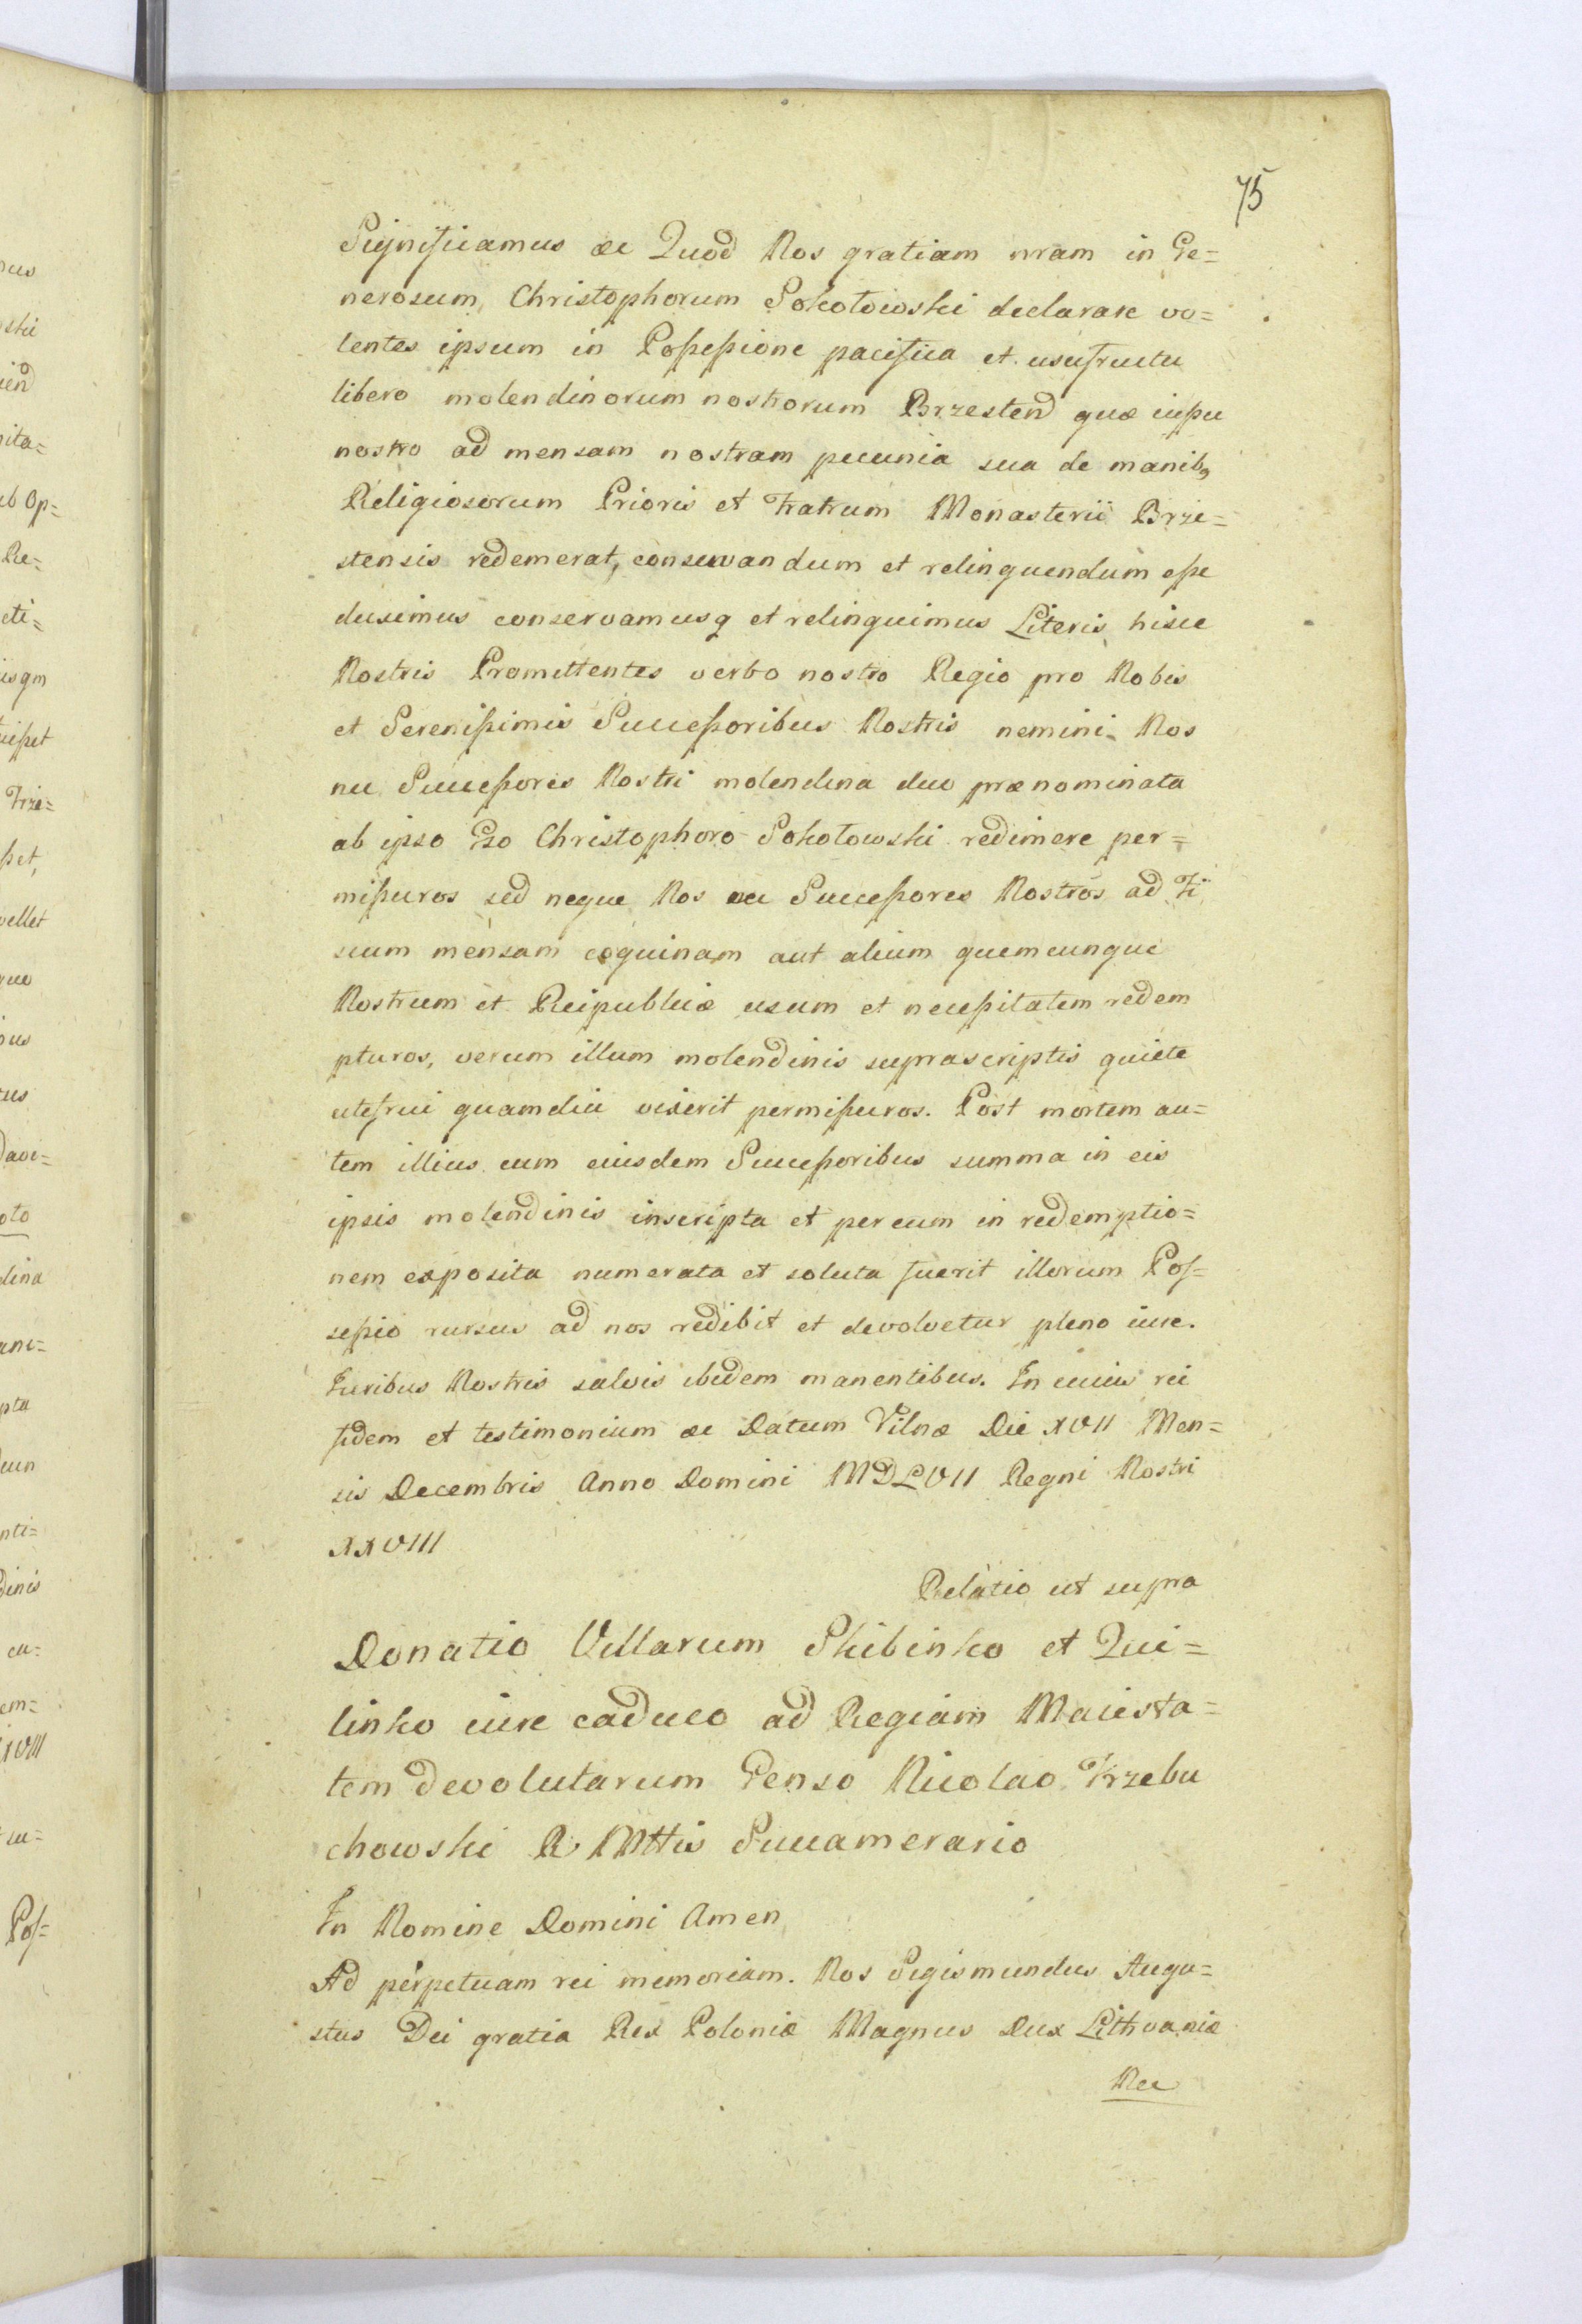 75
Significamus &c Quod Nos gratiam nram in Ge=
nerosum Christophorum Sokołowski declarare vo=
lentes ipsum in Possessione pacifica et usufructu
libero molendinorum nostrorum Brzesten quæ iussu
nostro ad mensam nostram pecunia sua de manib9
Religiosorum Prioris et Fratrum Monasterii Brze=
stensis redemerat, conservandum et relinquendum esse
duximus conservamusq et relinquimus Literis hisce
Nostris Promittentes verbo nostro Regio pro Nobis
et Serenissimis Successoribus Nostris nemini Nos
nec Successores Nostri molendina duo prænominata
ab ipso Gso Christophoro Sokołowski redimere per=
missuros sed neque Nos nec Successores Nostros ad Fi
scum mensam coquinam aut alium quemcunque
Nostrum et Reipublicæ usum et necessitatem redem
pturos, verum illum molendinis suprascriptis quiete
utifrui quamdiu vixerit permissuros. Post mortem au=
tem illius cum eiusdem Successoribus summa in eis
ipsis molendinis inscripta et per eum in redemptio=
nem exposita numerata et soluta fuerit illorum Pos=
sessio rursus ad nos redibit et devolvetur pleno iure.
Iuribus Nostris salvis ibidem manentibus. In cuius rei
fidem et testimonium &c Datum Vilnæ Die XVII Men=
sis Decembris Anno Domini MDLVII Regni Nostri
XXVIII
Relatio ut supra
Donatio Villarum Skibinko et Qui=
linko iure caduco ad Regiam Maiesta=
tem devolutarum Genso Nicolao Trzebu
chowski R Mttis Succamerario
In Nomine Domini Amen
Ad perpetuam rei memoriam. Nos Sigismundus Augu=
stus Dei gratia Rex Poloniæ Magnus Dux Lithvaniæ